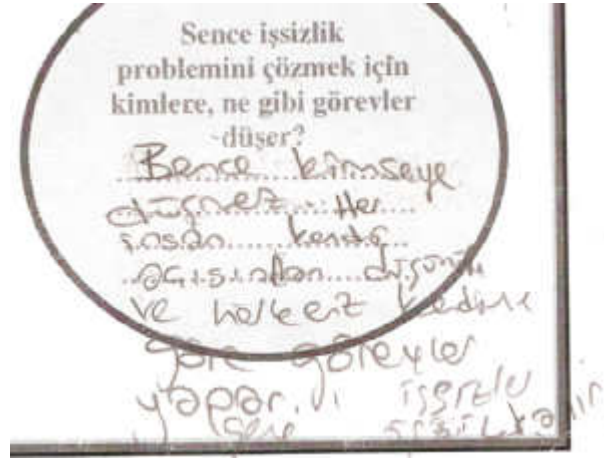 Sence işsizlik
problemini çözmek için
kimlere, ne gibi görevler
düşer?
Bence kimseye
düşmez. Her
insan kendi
açısından düşünür
ve herkez kedine
göre görevler
yapar.